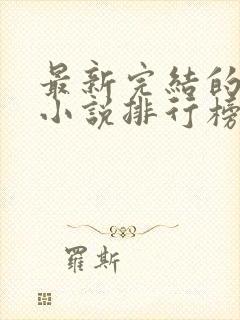 最新完結的
小說排行榜
羅斯